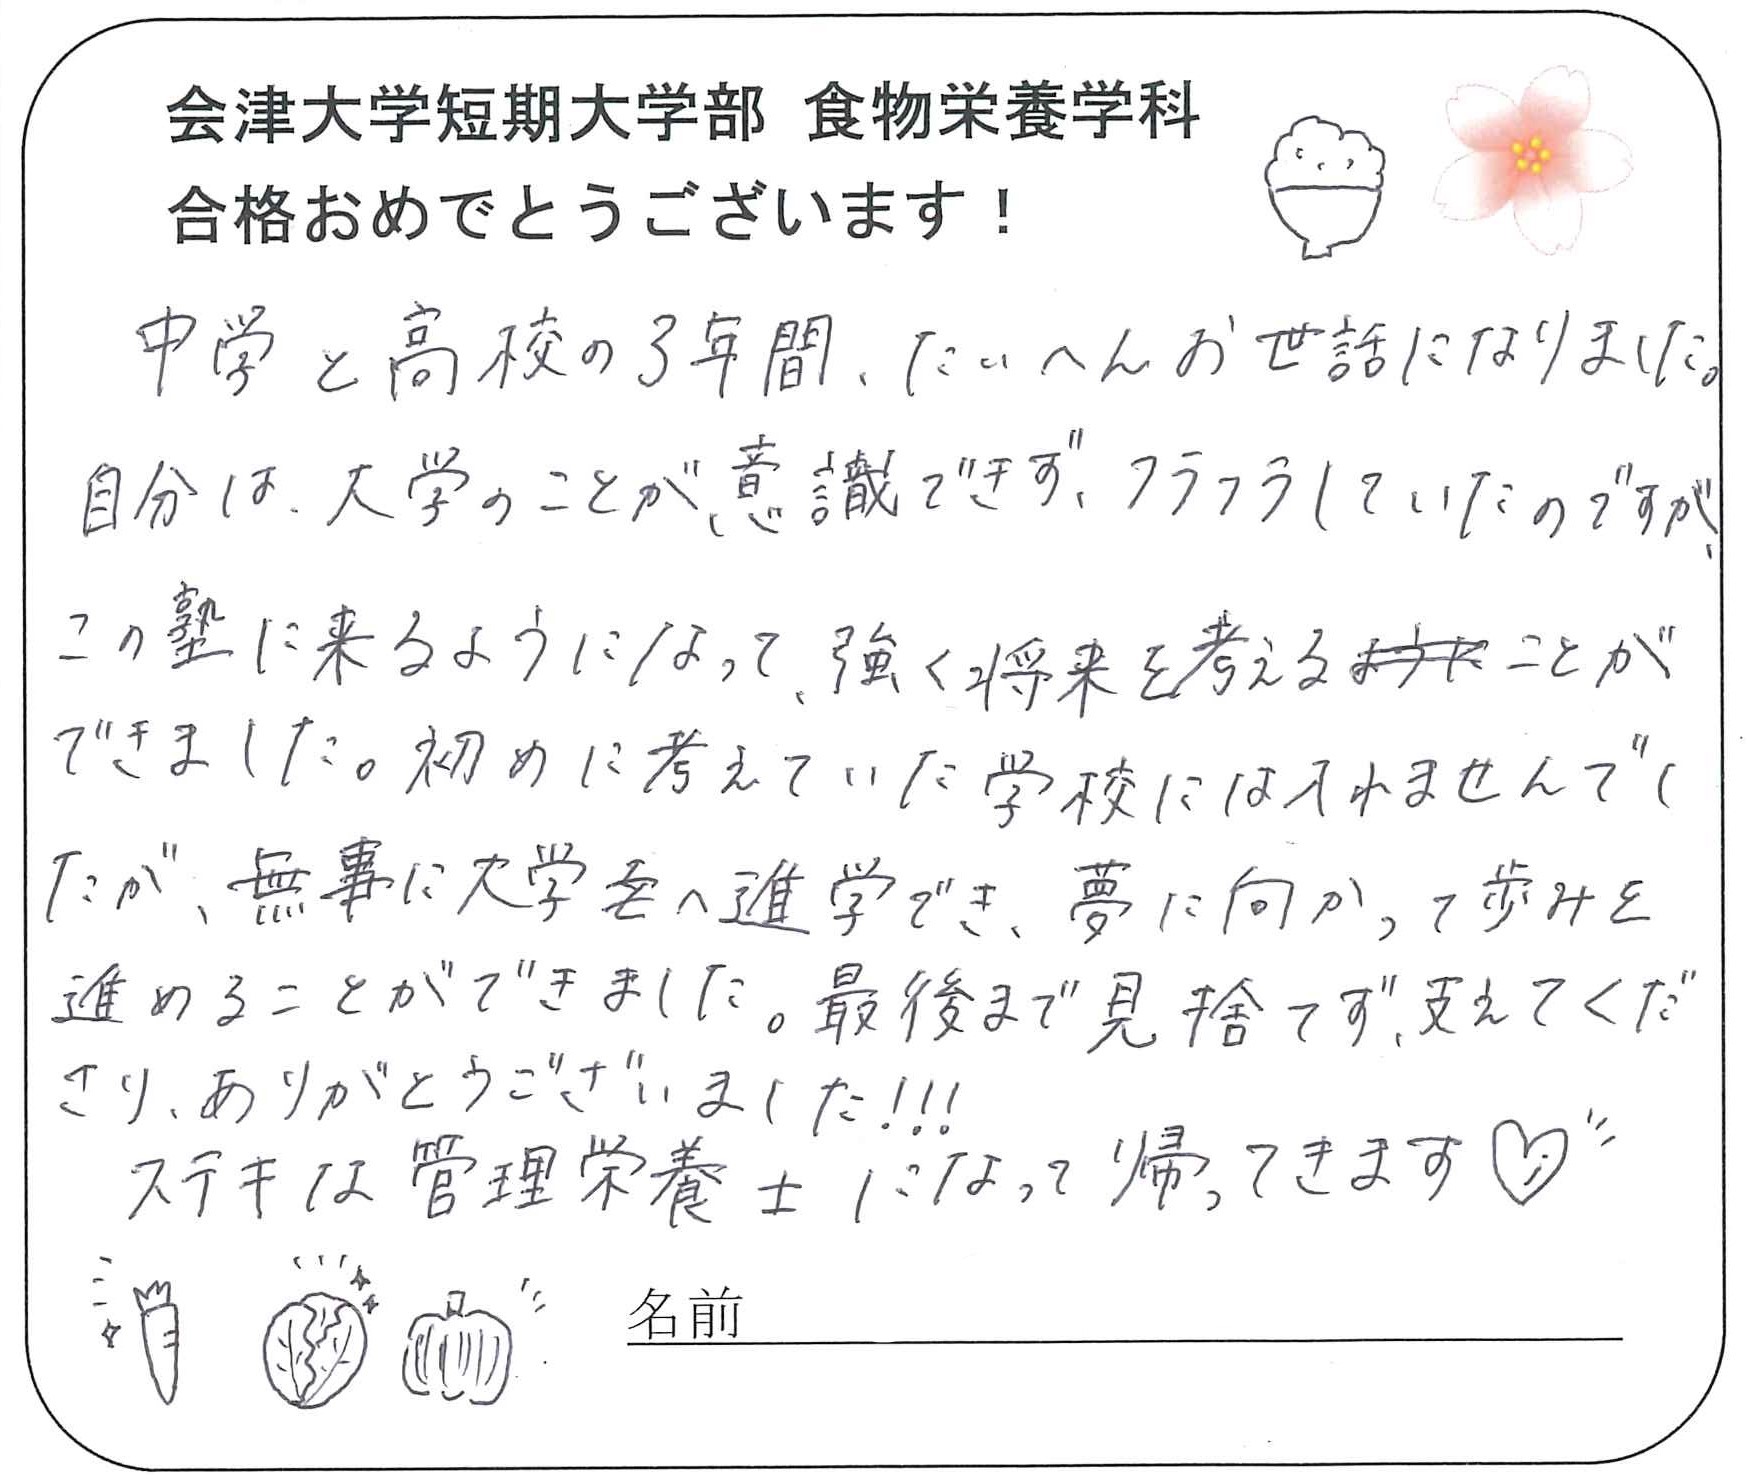 会津大学短期大学部 食物栄養学科
合格おめでとうございます！
中学と高校の3年間、たいへんお世話になりました。
自分は、大学のことが、意識できず、フラフラしていたのですが、
この塾に来るようになって、強く将来を考えることが
できました。初めに考えていた学校には入れませんでし
たが、無事に大学へ進学でき、夢に向かって歩みを
進めることができました。最後まで見捨てず、支えてくだ
さり、ありがとうございました!!!
ステキな管理栄養士になって帰ってきます♡
名前